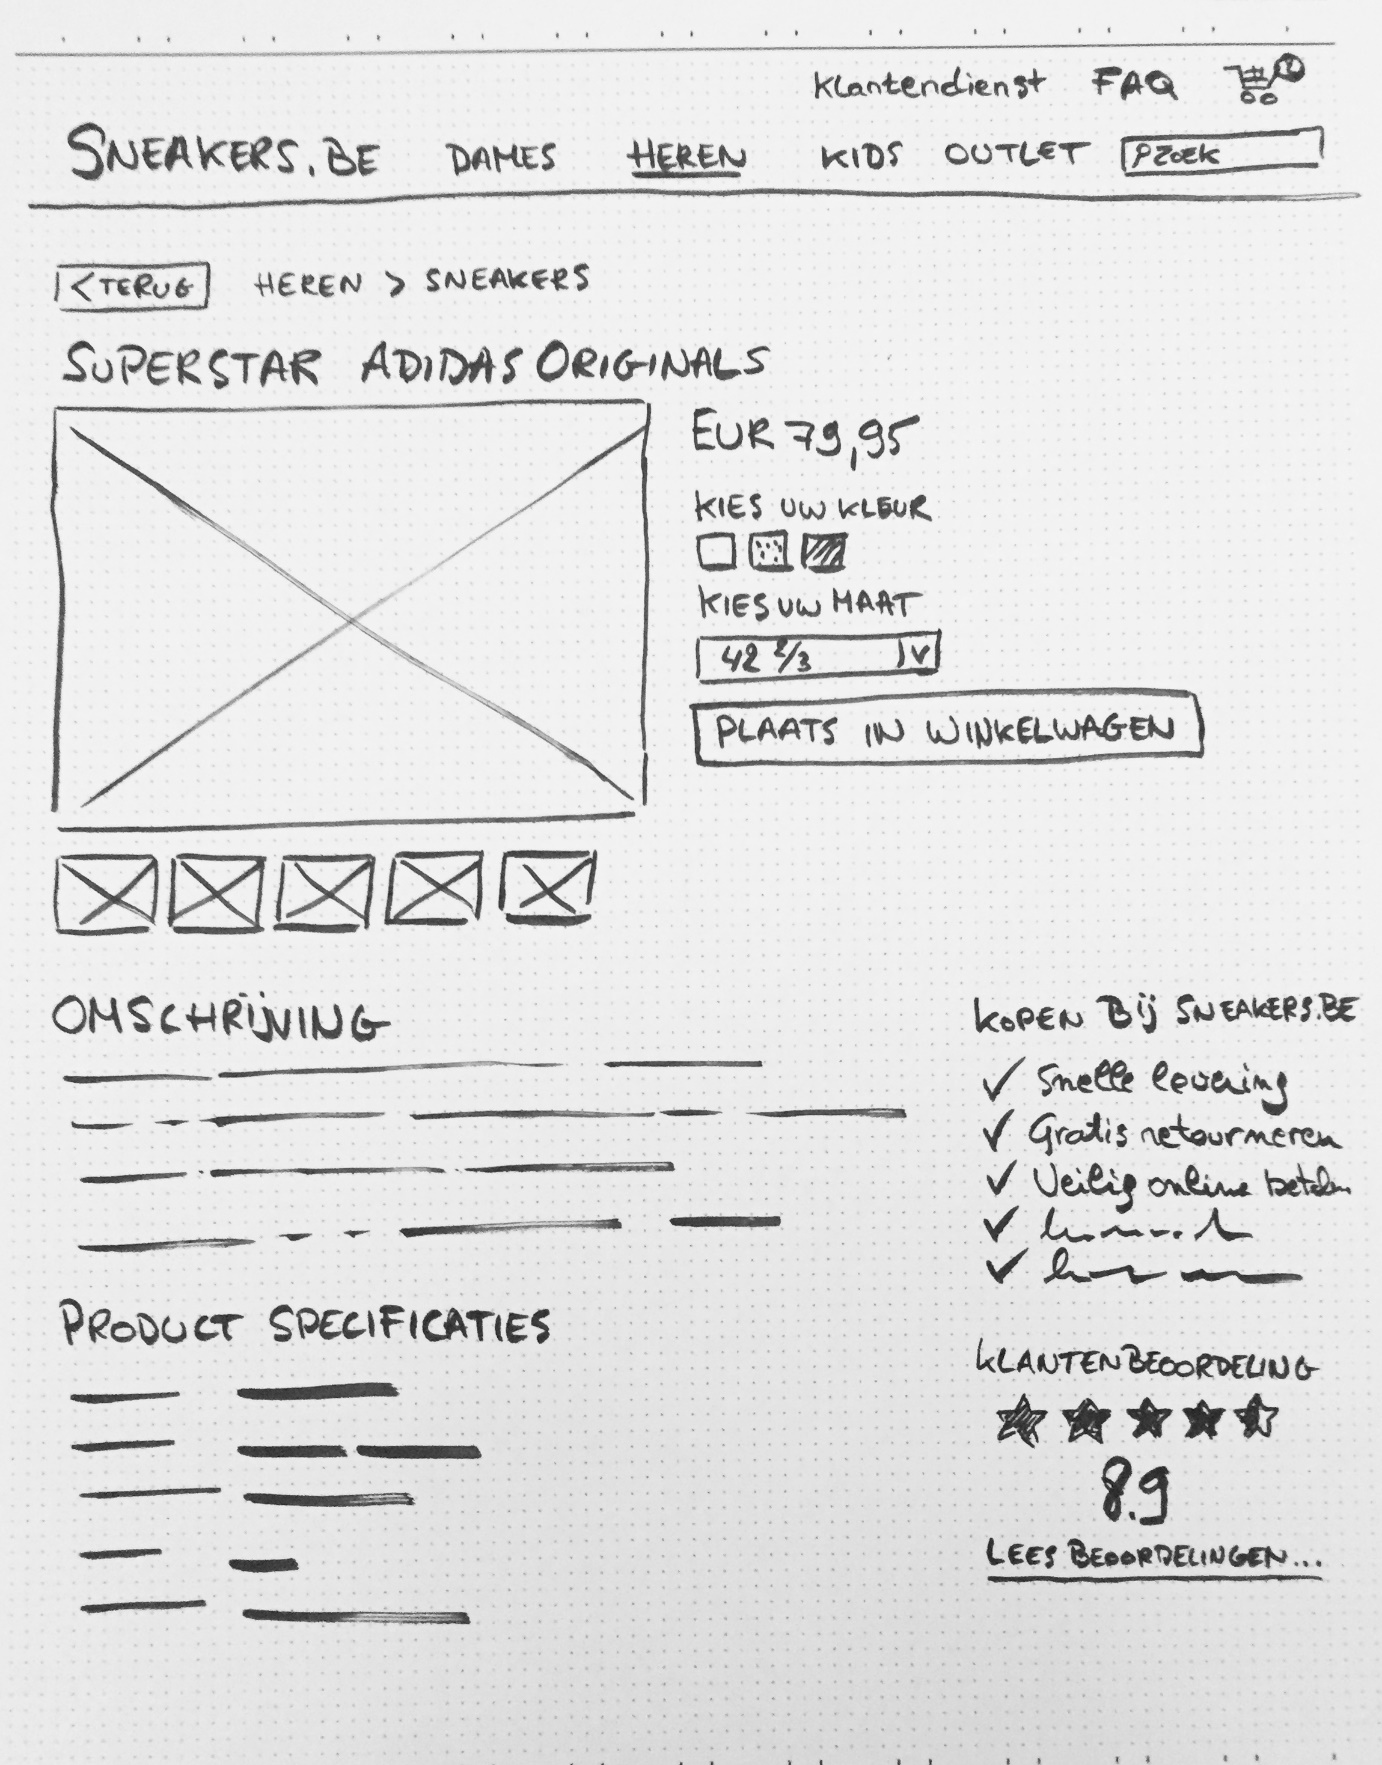 Klantendienst FAQ
SNEAKERS.BE DAMES HEREN KIDS OUTLET ZOEK
< TERUG HEREN > SNEAKERS
SUPERSTAR ADIDAS ORIGINALS
EUR 79,95
KIES UW KLEUR
KIES UW MAAT
42 2/3
PLAATS IN WINKELWAGEN
OMSCHRIJVING
KOPEN BIJ SNEAKERS.BE
✓ Snelle levering
✓ Gratis retourneren
✓ Veilig online betalen
PRODUCT SPECIFICATIES
KLANTENBEOORDELING
8.9
LEES BEOORDELINGEN...